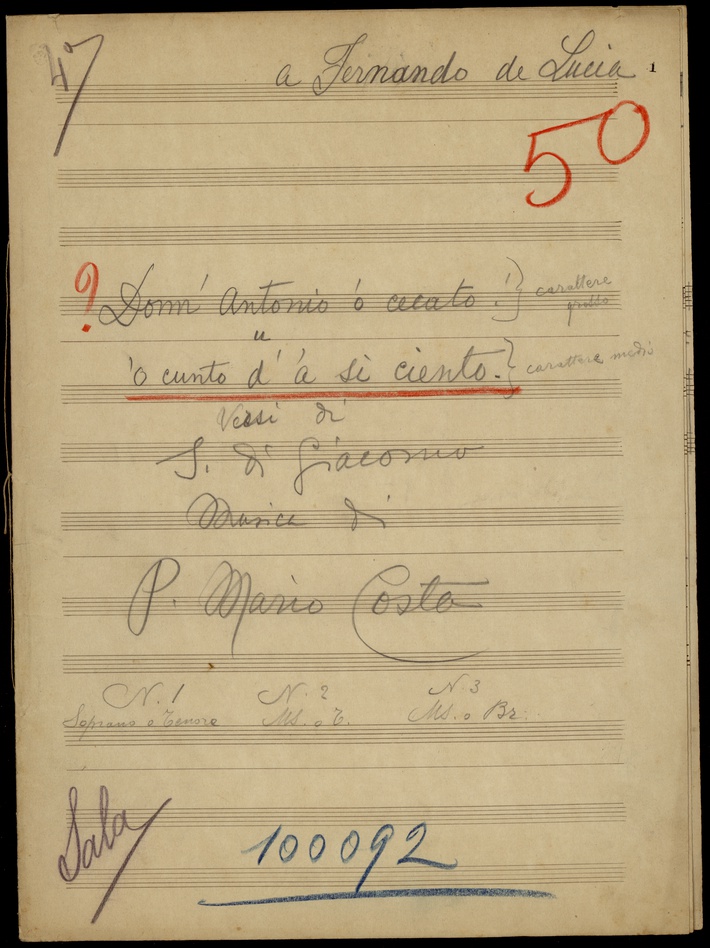 47
a Fernando de Lucia
1
50
? Donn' Antonio 'o cecato!} carattere
grosso
"
'o cunto d' 'a si ciento.} carattere medio
Versi di
S. di Giacomo
Musica di
P. Mario Costa
N. 1 N. 2 N. 3
Soprano o Tenore MS. o T. MS. o Br.
Sala
100092